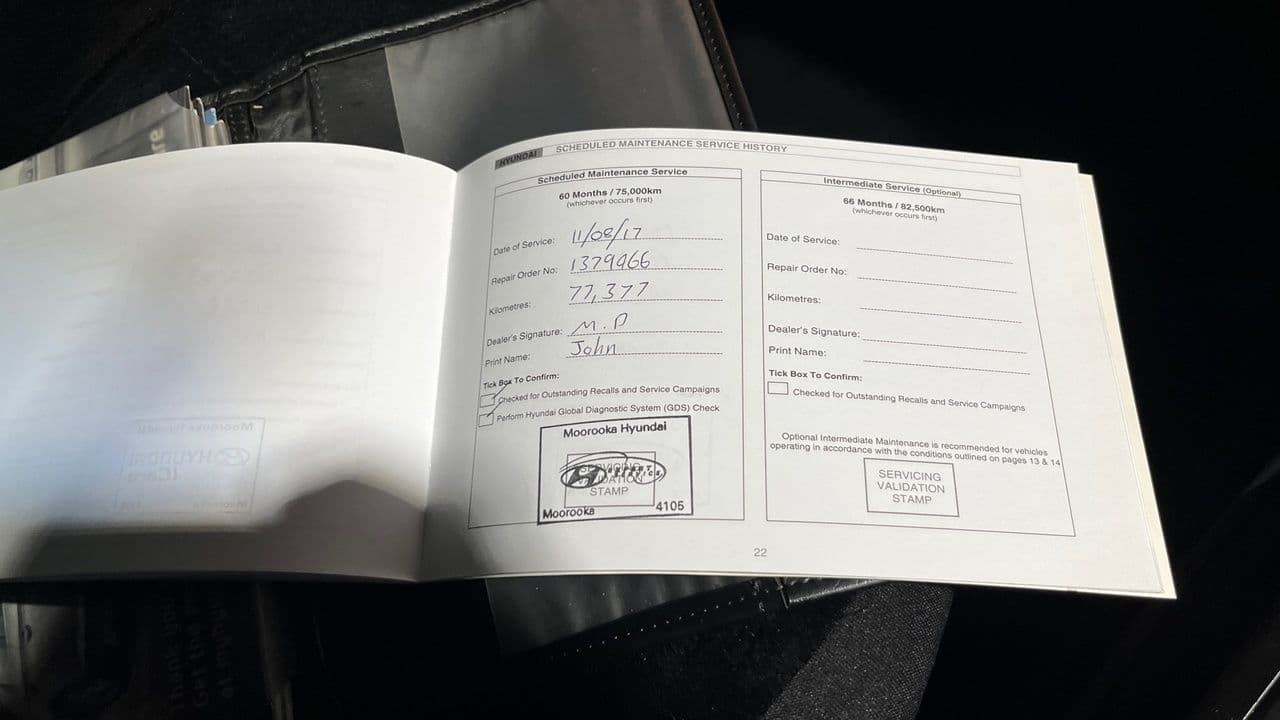 HYUNDAI SCHEDULED MAINTENANCE SERVICE HISTORY
Scheduled Maintenance Service
60 Months / 75,000km
(whichever occurs first)
Date of Service: 11/08/17
Repair Order No: 1379466
Kilometres: 77,377
Dealer's Signature: M.P
Print Name: John
Tick Box To Confirm:
Checked for Outstanding Recalls and Service Campaigns
Perform Hyundai Global Diagnostic System (GDS) Check
Moorooka Hyundai
SERVICING
VALIDATION
STAMP
Moorooka 4105
Intermediate Service (Optional)
66 Months / 82,500km
(whichever occurs first)
Date of Service:
Repair Order No:
Kilometres:
Dealer's Signature:
Print Name:
Tick Box To Confirm:
Checked for Outstanding Recalls and Service Campaigns
Optional Intermediate Maintenance is recommended for vehicles
operating in accordance with the conditions outlined on pages 13 & 14
SERVICING
VALIDATION
STAMP
22